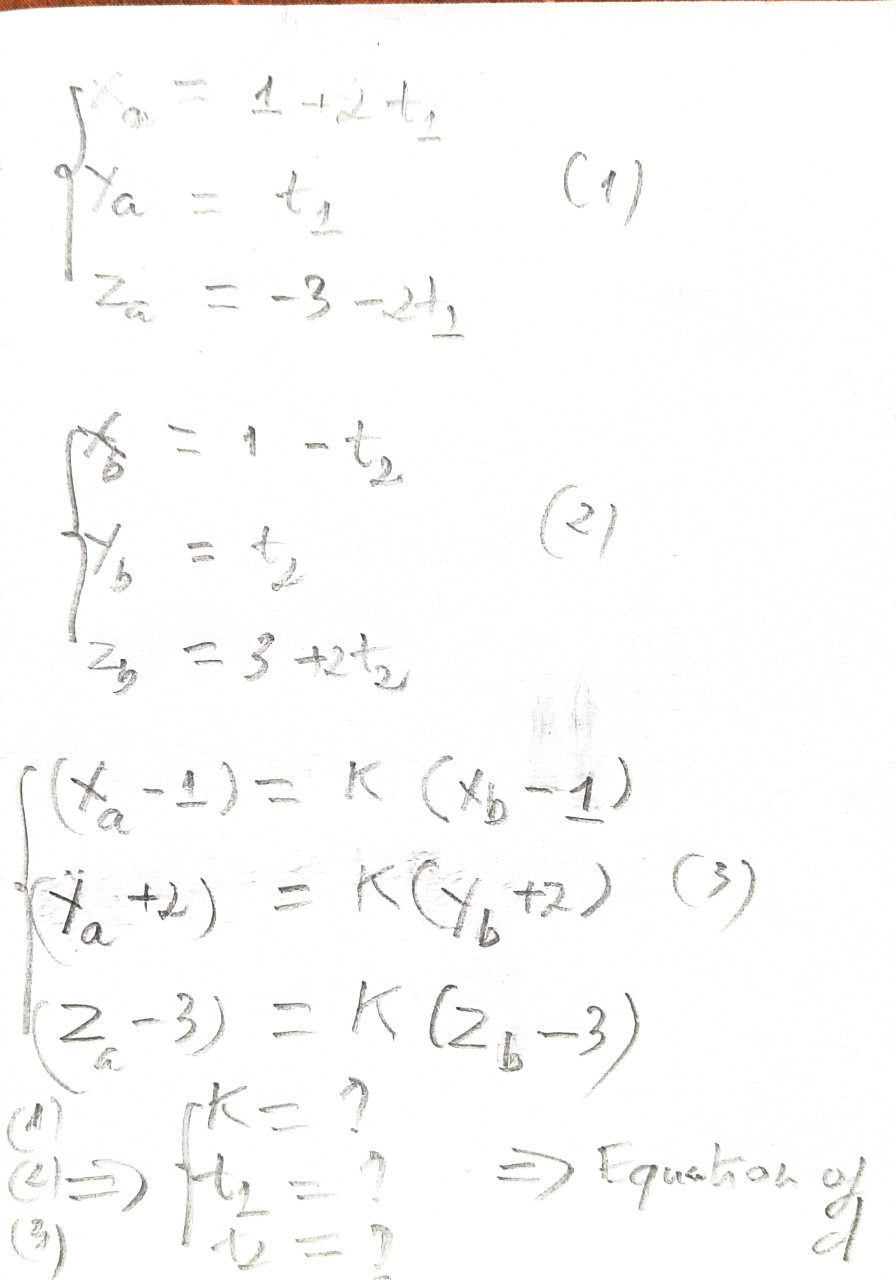 Xa = 1 + 2t1
Ya = t1 (1)
Za = -3 - 2t1
Xb = 1 - t2
Yb = t2 (2)
Zb = 3 + 2t2
(Xa - 1) = K (Xb - 1)
(Ya + 2) = K (Yb + 2) (3)
(Za - 3) = K (Zb - 3)
(1) K = ?
(2) => t1 = ? => Equation of
(3) t2 = ? d